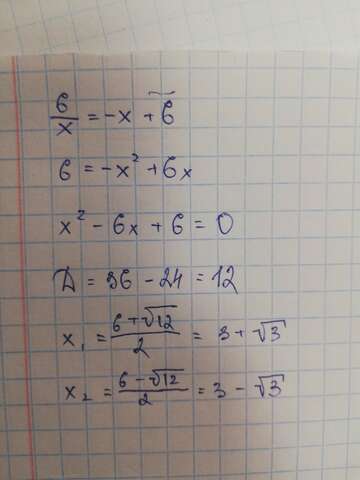 6/x = -x + 6
6 = -x² + 6x
x² - 6x + 6 = 0
D = 36 - 24 = 12
x₁ = (6 + √12)/2 = 3 + √3
x₂ = (6 - √12)/2 = 3 - √3